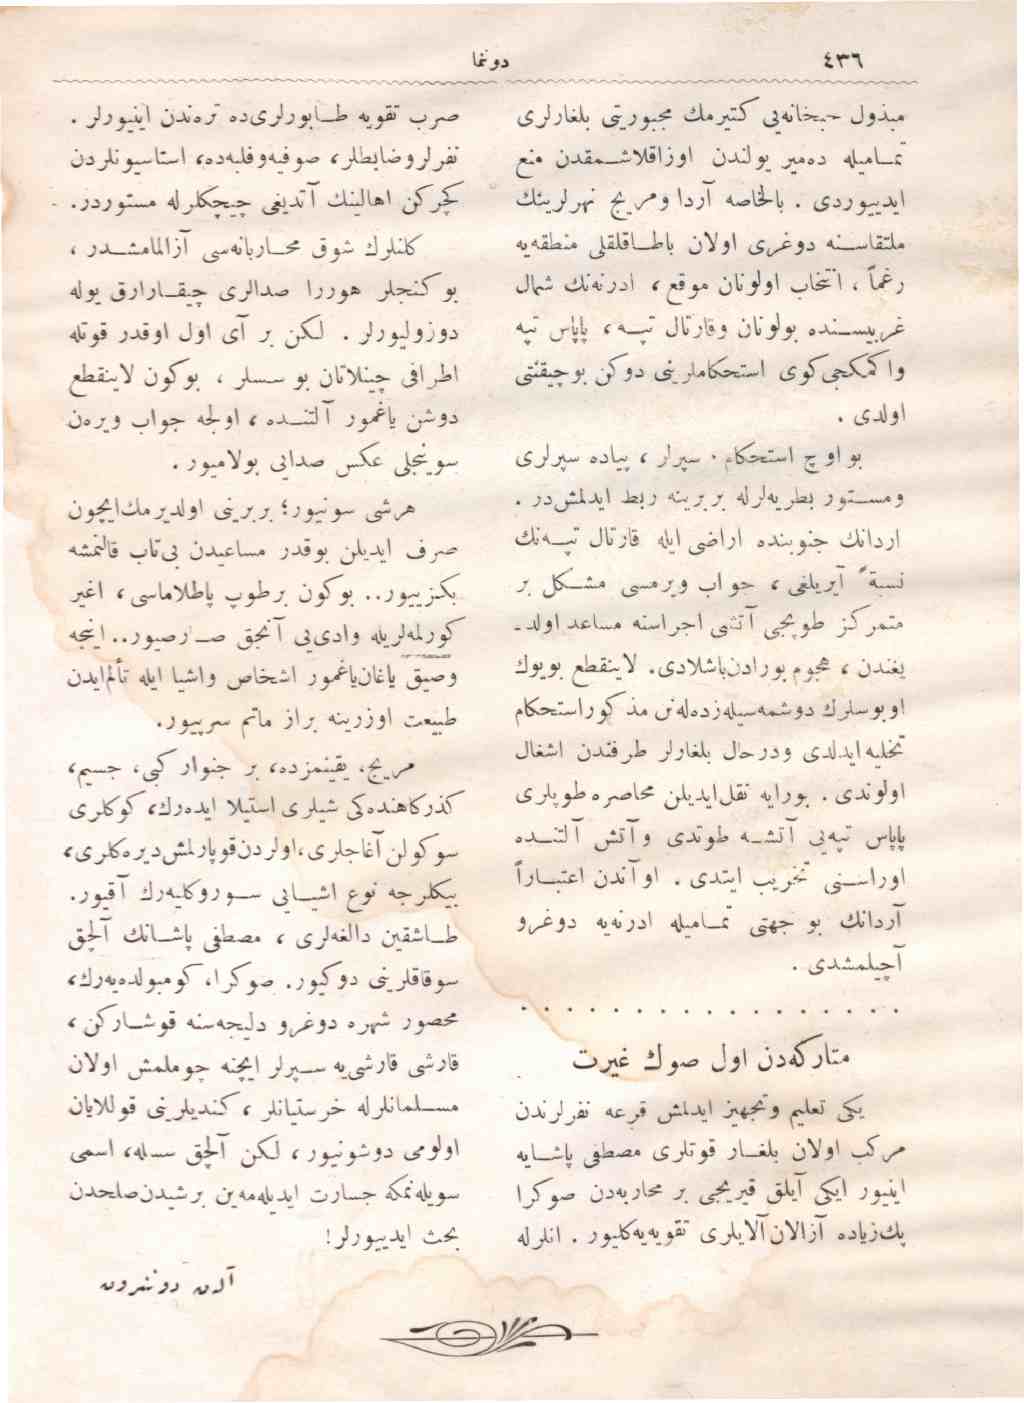 ٤٣٦
دوننما
مبذول جبخانه‌یی كتیرمك مجبوریتی بلغارلری
تمـامیله ده‌میر یولندن اوزاقلاشـمقدن منع
ایدییوردی . بالخاصه آردا ومریج نهرلرینك
ملتقاسـنه دوغری اولان باطـاقلقلی منطقه‌یه
رغماً ، انتخاب اولونان موقع ، ادرنه‌نك شمال
غربیسـنده بولونان وقارتال تپـه ، پاپاس تپه
واكمكجی‌كوی استحكاملرینی دوكن بوچیقنتی
اولدی .
بو اوچ استحكام . سپرلر ، پیاده سپرلری
ومسـتور بطریه‌لرله بربرینه ربط ایدلمش‌در .
اردانك جنوبنده اراضی ایله قارتال تپـه‌نك
نسبةً آیریلغی ، جواب ویرمسی مشـكل بر
متمركز طوپجی آتشی اجراسنه مساعد اولد-
یغندن ، هجوم بورادن‌باشلادی. لاینقطع بویوك
اوبوسلرك دوشمه‌سیله‌زده‌له‌نن مذكور‌استحكام
تخلیه ایدلدی ودرحال بلغارلر طرفندن اشغال
اولوندی . بورایه نقل‌ایدیلن محاصره طوپلری
پاپاس تپه‌یی آتشـه طوتدی وآتش آلتنـده
اوراسـنی تخریب ایتدی . اوآندن اعتبـاراً
آردانك بو جهتی تمـامیله ادرنه‌یه دوغرو
آچیلمشدی .
. . . . . . . . . . . . . . . . .
متاركه‌دن اول صوك غیرت
یكی تعلیم وتجهیز ایدلمش قرعه نفرلرندن
مركب اولان بلغـار قوتلری مصطفی پاشـایه
اینیور ایكی آیلق قیریجی بر محاربه‌دن صوكرا
پك‌زیاده آزالان‌آلایلری تقویه‌یه‌كلیور . انلرله
صرب تقویه طـابورلری‌ده تره‌ندن اینیورلر .
نفرلروضابطلر، صوفیه‌وفلبه‌ده، استاسیونلردن
كچركن اهالینك آتدیغی چیچكلرله مستوردر.
كلنلرك شوق محـاربانه‌سی آزالمامشـدر ،
بو كنجلر هوررا صدالری چیقـارارق یوله
دوزولیورلر . لكن بر آی اول اوقدر قوتله
اطرافی چینلاتان بو سـسلر ، بوكون لاینقطع
دوشن یاغمور آلتنـده ، اولجه جواب ویره‌ن
سوینجلی عكس صدایی بولامیور.
هرشی سونیور؛ بربرینی اولدیرمك‌ایچون
صرف ایدیلن بوقدر مساعیدن بی‌تاب قالنمشه
بكزییور.. بوكون برطوپ پاطلاماسی، اغیر
كورلمه‌لریله وادی‌یی آنجق صـارصیور.. اینجه
وصیق یاغان‌یاغمور اشخاص واشیا ایله تألم‌ایدن
طبیعت اوزرینه براز ماتم سرپیور.
مریج، یقینمزده، بر جنوار كبی، جسیم،
كذركاهنده‌كی شیلری استیلا ایده‌رك، كوكلری
سوكولن آغاجلری،اولردن‌قوپارلمش‌دیره‌كلری،
بیكلرجه نوع اشیـایی سـوروكلیه‌رك آقیور.
طـاشقین دالغه‌لری ، مصطفی پاشـانك آلچق
سوقاقلرینی دوكیور. صوكرا، كومبولده‌یه‌رك،
محصور شهره دوغرو دلیجه‌سنه قوشـاركن،
قارشی قارشی‌یه سـپرلر ایچنه چوملمش اولان
مسـلمانلرله خرستیانلر ، كندیلرینی قوللایان
اولومی دوشونیور، لكن آلچق سسله، اسمی
سویله‌نمكه جسارت ایدیله‌مه‌ین برشیدن‌صلحدن
بحث ایدییورلر!
آلـن دوننرون